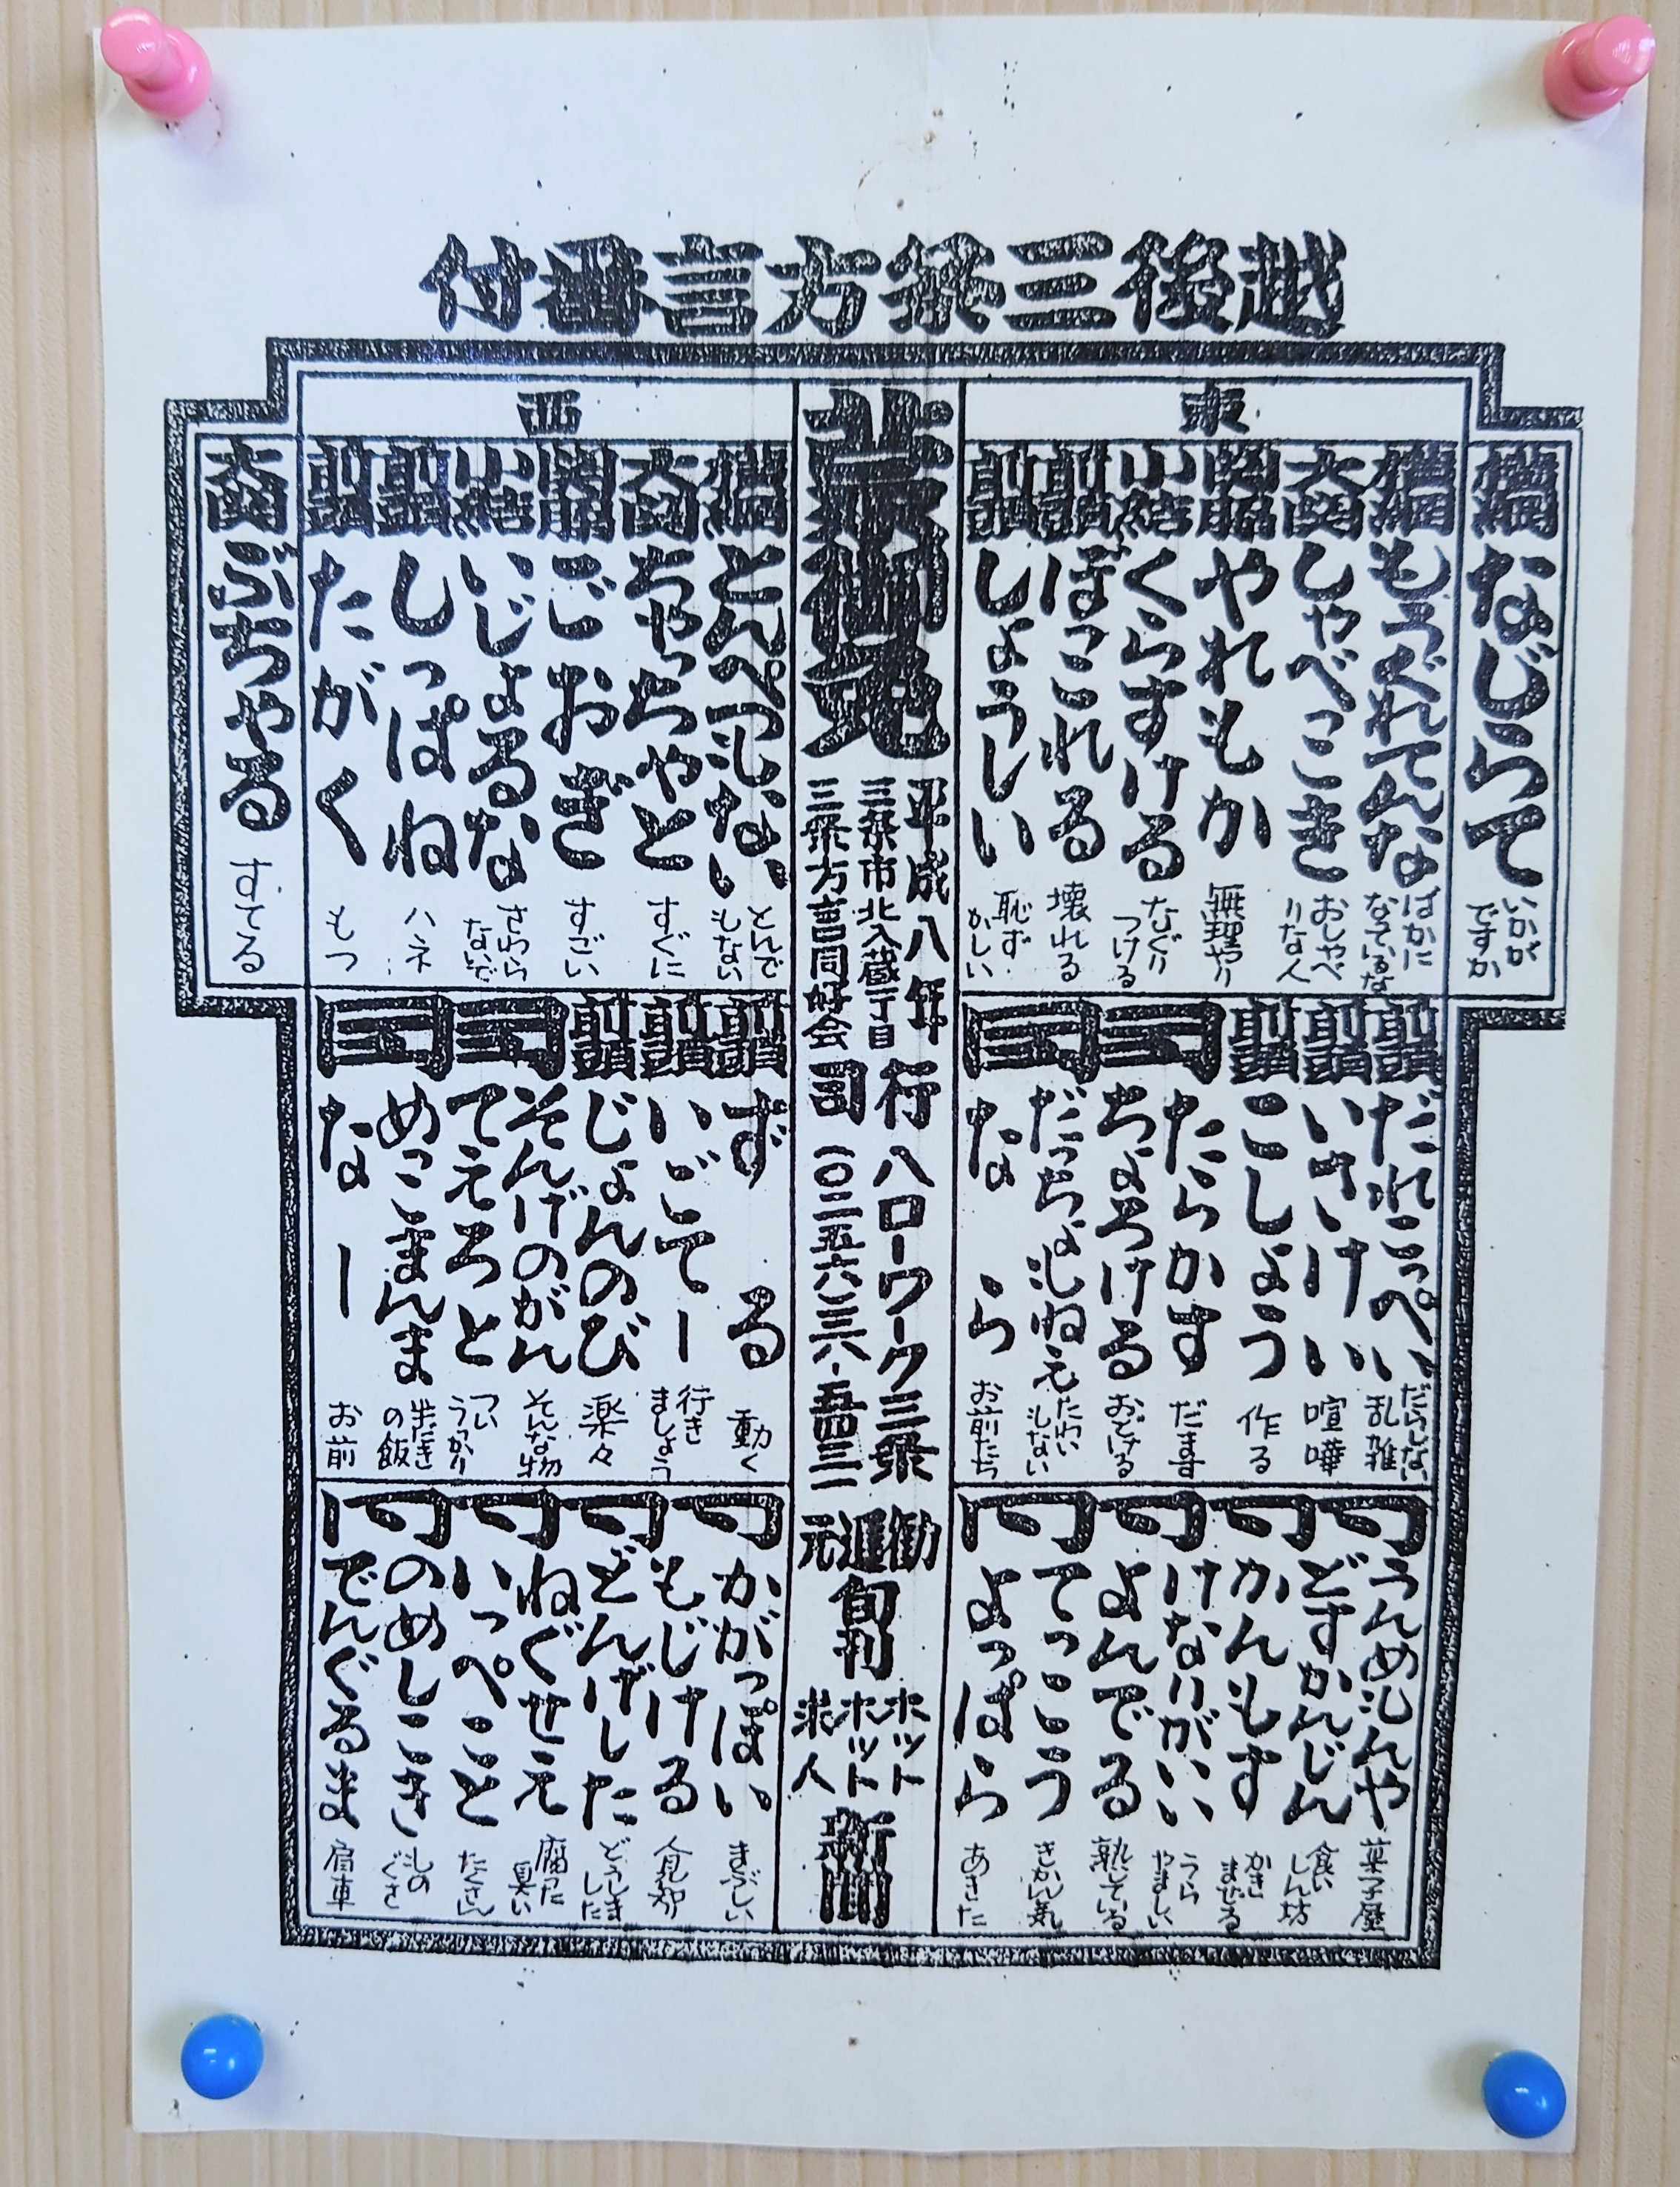 越後三条方言番付
東
横綱 なじらて いかがですか
横綱 もうぐれてんな ばかになているな
大関 しゃべっこき おしゃべりな人
関脇 やれもか 無理やり
小結 くらすける なぐりつける
前頭 ぼっこれる 壊れる
前頭 しょうしい 恥ずかしい
前頭 だれこっぺい だらしない乱雑
前頭 いさけい 喧嘩
前頭 こしょう 作る
同 たらかす だます
同 ちょうける おどける
同 だっちょもねえ たわいもない
同 なら お前たち
同 うんめもんや 菓子屋
同 どすかんじん 食いしん坊
同 かんもす かきまぜる
同 けなりがい うらやましい
同 よんでる 熟している
同 てっこう きかん気
同 よっぱら あきた
蒙御免
平成八年
三条市北入蔵一丁目
三条方言同好会
行司
ハローワーク三条
〇二五六-三八-五四三一
勧進元
旬刊
ホットホット求人
新聞
西
横綱 とんぺつもない とんでもない
大関 ちゃっちゃと すぐに
関脇 ごおぎ すごい
小結 いじょるな さわらないで
前頭 しっぱね ハネ
前頭 たがく もつ
大関 ぶちゃる すてる
前頭 ずる 動く
前頭 いごてー 行きましょう
前頭 じょんのび 楽々
同 そんげのがん そんな物
同 てえろと ついうっかり
同 めっこまんま 生だきの飯
同 なー お前
同 かがっぽい まぶしい
同 もじける 人見知り
同 どんげした どうしました
同 ねぐせえ 腐った臭い
同 いっぺこと たくさん
同 のめしこき ものぐさ
同 でんぐるま 肩車